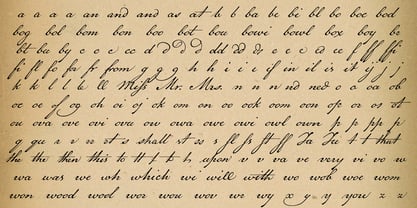 a a a a an and and as at b b ba be bi bl bo boc bod
bog bol bom bon boo bot bou bowi bowl box boy br
bt bu by c c c cc d d d d dd dd dr e e e f ff ffi
fi fl fo for fr from g g g h h i i i if in il is it y j j
k k l l l ll Miss Mr. Mrs. n n n nd ned o o oa ob
oc oe of og oh oi oj ok om on oo ook oom oon op or os ot
ou ova ove ovi ow owa owe owi owl own p p pp p
q qu r r rr rt s shall st ss s fl fs ft ff Ta Tu t t that
the the then this to tt t t t, upon v v va ve very vi vo w
wa was we wh which wi will with wo wob woe wom
won wood wool wor wou wov wr wy x y y you z z